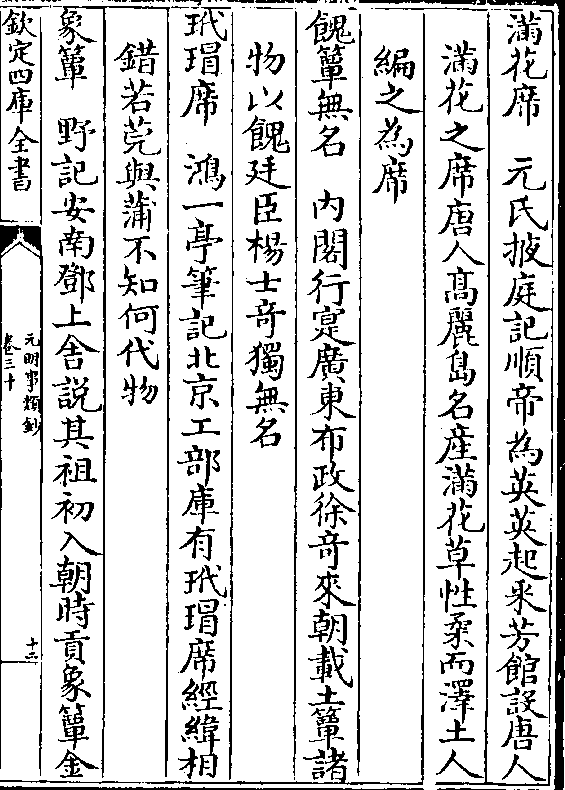 滿花席　元氏掖庭記順帝為英英起采芳館設唐人
滿花之席唐人髙麗島名産滿花草性柔而澤土人
編之為席
餽簟無名　内閣行寔廣東布政徐竒來朝載土簟諸
物以餽廷臣楊士竒獨無名
玳瑁席　鴻一亭筆記北京工部庫有玳瑁席經緯相
錯若莞與蒲不知何代物
象簟　野記安南鄧上舍説其祖初入朝時貢象簟金
欽定四庫全書
元明事類鈔
卷三十
十二